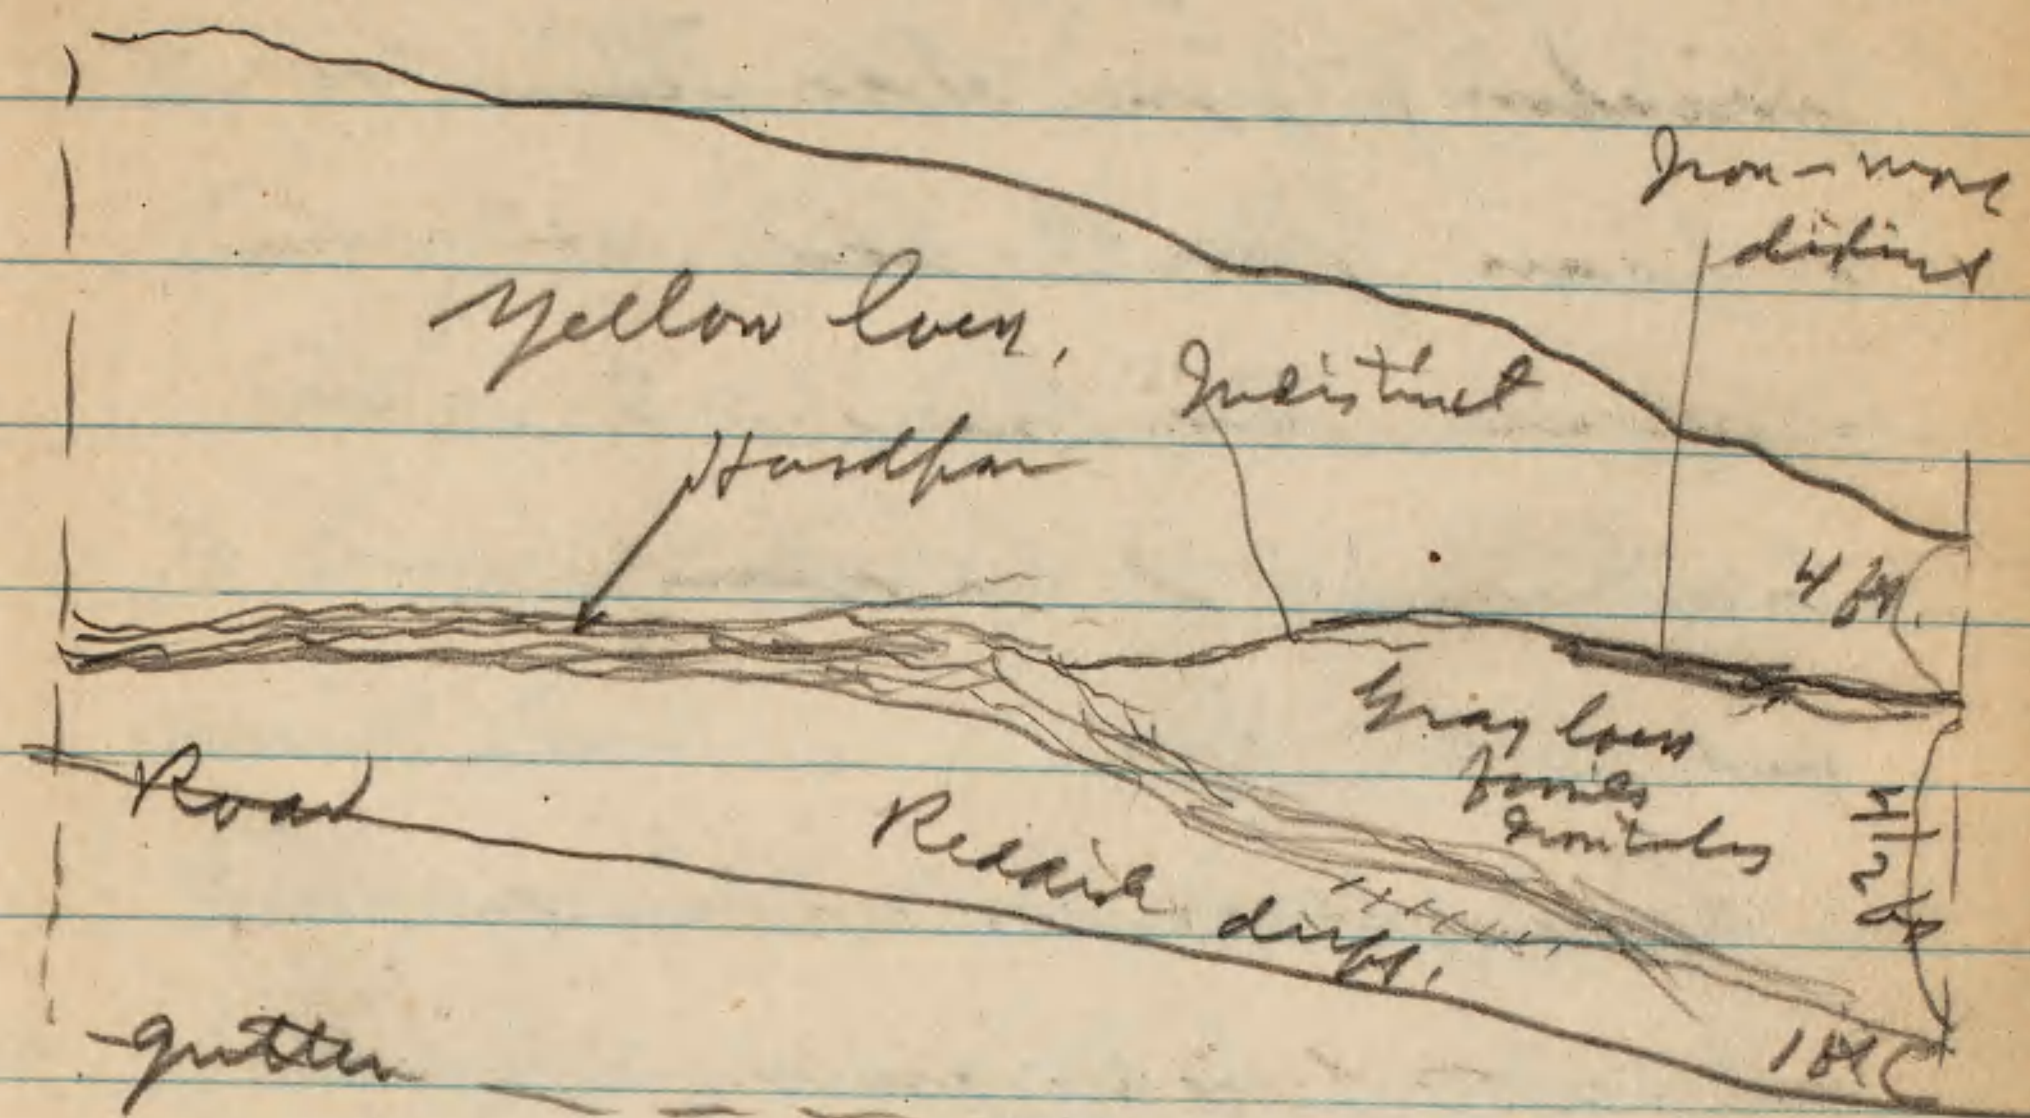 Iron - more
distinct
Yellow loess.
Indistinct
Hardpan
4 ft.
Gray loess
fossils
Road
Reddish drift.
1 ft
gutter